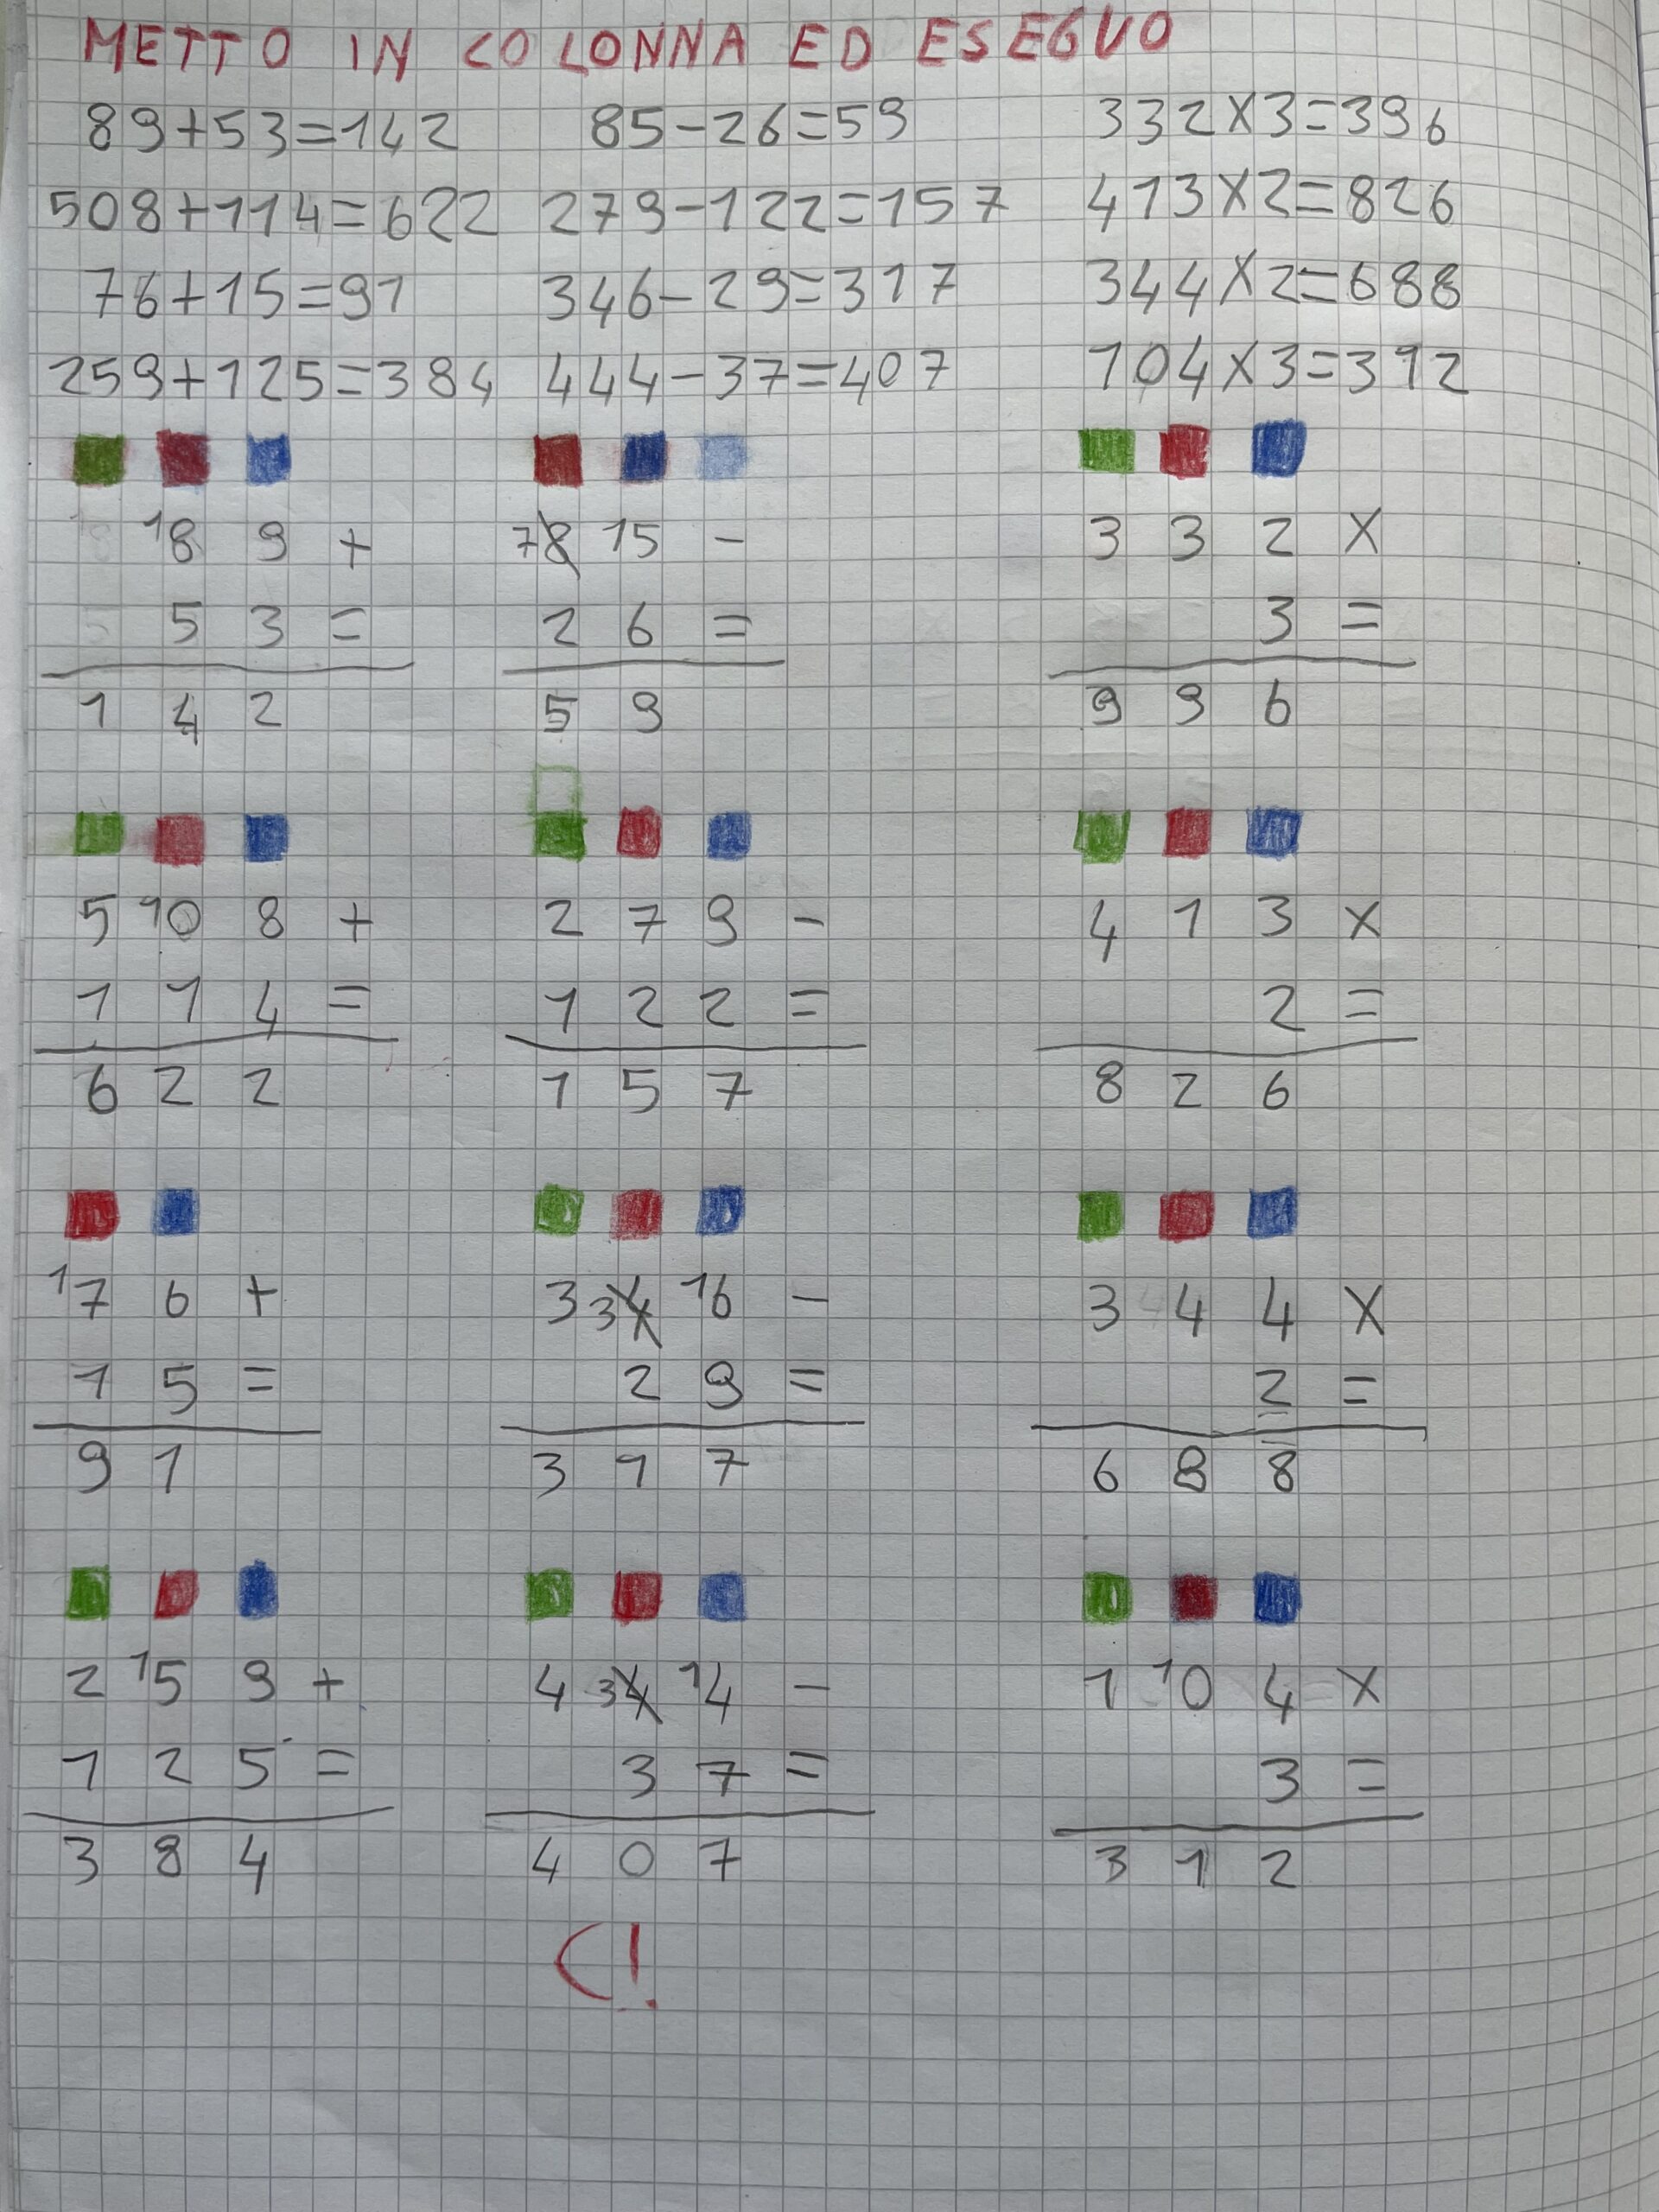 METTO IN COLONNA ED ESEGUO
89+53=142 85-26=59 332X3=396
508+114=622 279-122=157 413X2=826
76+15=91 346-29=317 344X2=688
259+125=384 444-37=407 104X3=392
18 9 + 78 15 - 3 3 2 X
5 3 = 2 6 = 3 =
1 4 2 5 9 9 9 6
5 10 8 + 2 7 9 - 4 1 3 X
1 1 4 = 1 2 2 = 2 =
6 2 2 1 5 7 8 2 6
17 6 + 3 34 16 - 3 4 4 X
1 5 = 2 9 = 2 =
9 1 3 1 7 6 8 8
2 15 9 + 4 34 14 - 1 10 4 X
1 2 5 = 3 7 = 3 =
3 8 4 4 0 7 3 1 2